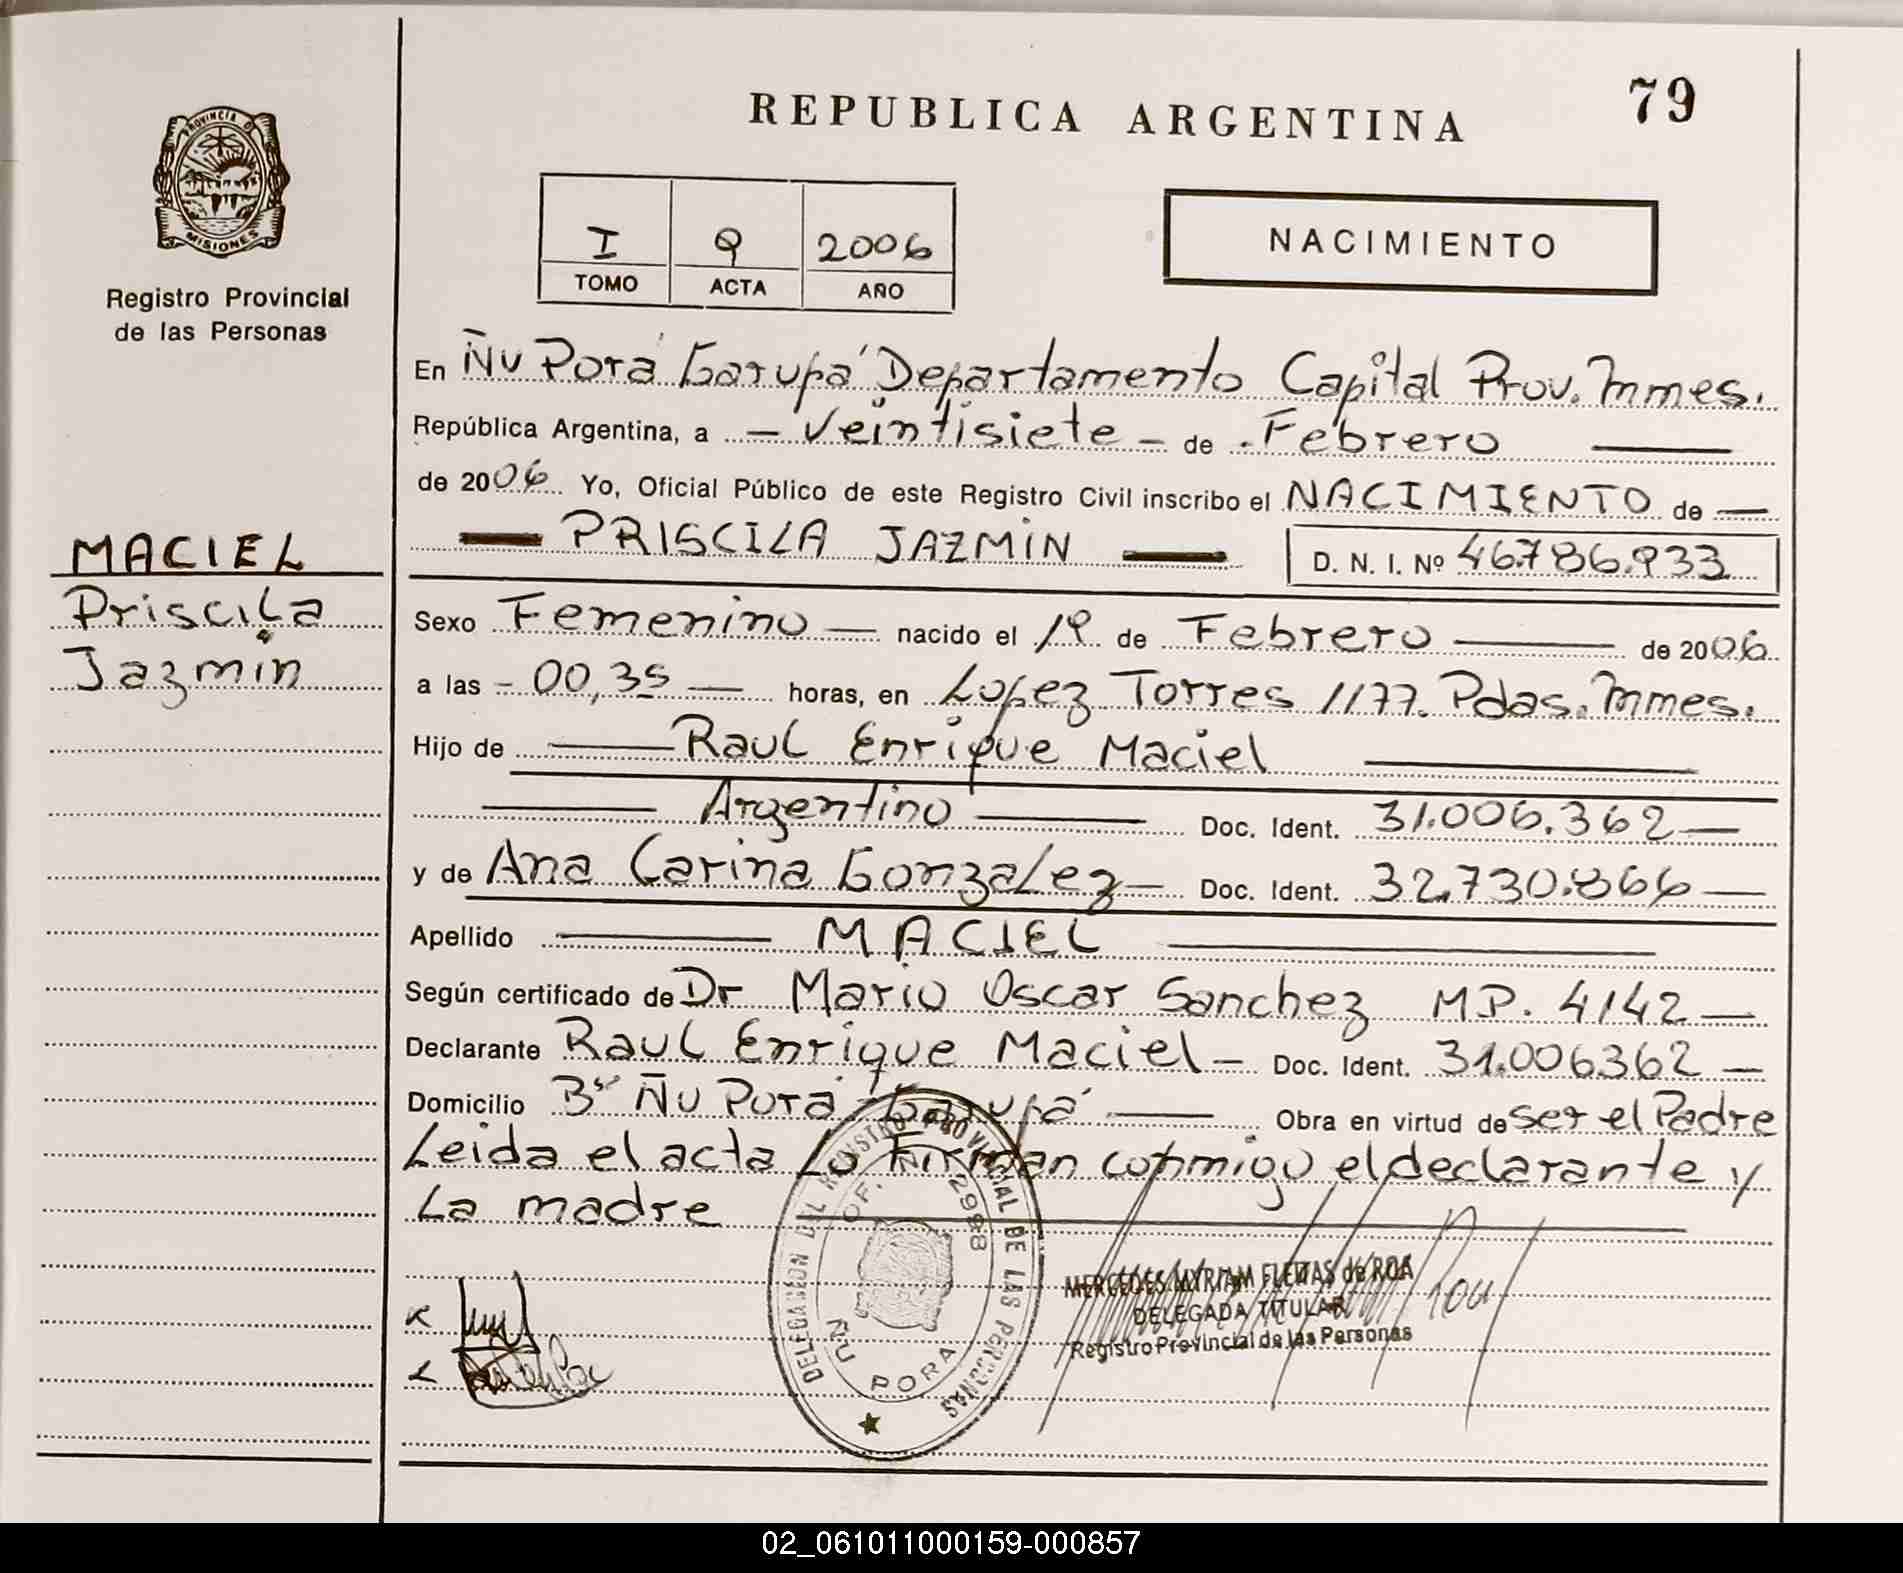 REPUBLICA ARGENTINA
79
PROVINCIA DE
MISIONES
Registro Provincial
de las Personas
I 9 2006
TOMO ACTA AÑO
NACIMIENTO
MACIEL
Priscila
Jazmin
En Ñu Porá Garupá Departamento Capital Prov. Mnes.
República Argentina, a - Veintisiete - de Febrero
de 2006 Yo, Oficial Público de este Registro Civil inscribo el NACIMIENTO de
PRISCILA JAZMIN D. N. I. Nº 46.786.933
Sexo Femenino nacido el 19 de Febrero de 2006
a las - 00,35 horas, en Lopez Torres 1177. Pdas. Mnes.
Hijo de Raul Enrique Maciel
Argentino Doc. Ident. 31.006.362
y de Ana Carina Gonzalez Doc. Ident. 32.730.866
Apellido MACIEL
Según certificado de Dr Mario Oscar Sanchez MP. 4142
Declarante Raul Enrique Maciel - Doc. Ident. 31.006362
Domicilio Bº Ñu Porá Garupá Obra en virtud de ser el Padre
Leida el acta Lo Firman conmigo el declarante y
La madre
DELEGACION DEL REGISTRO PROVINCIAL DE LAS PERSONAS
OF. 2998
ÑU PORA
MERCEDES MYRIAM FLEITAS de ROA
DELEGADA TITULAR
Registro Provincial de las Personas
02_061011000159-000857